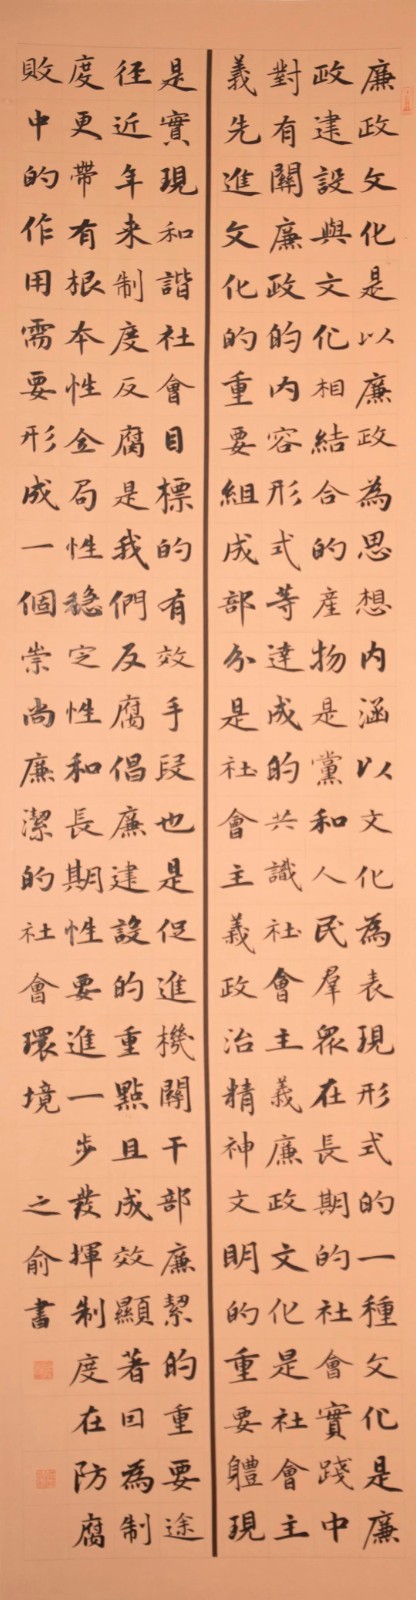 廉政文化是以廉政為思想内涵以文化為表現形式的一種文化是廉
政建設與文化相結合的產物是黨和人民羣眾在長期的社會實踐中
對有關廉政的内容形式等達成的共識社會主義廉政文化是社會主
義先進文化的重要組成部分是社會主義政治精神文明的重要軆現
是實現和諧社會目標的有效手段也是促進機關干部廉絜的重要途
徑近年来制度反腐是我們反腐倡廉建設的重點且成效顯著因為制
度更帶有根本性全局性穩定性和長期性要進一步發揮制度在防腐
敗中的作用需要形成一個崇尚廉潔的社會環境 之俞書